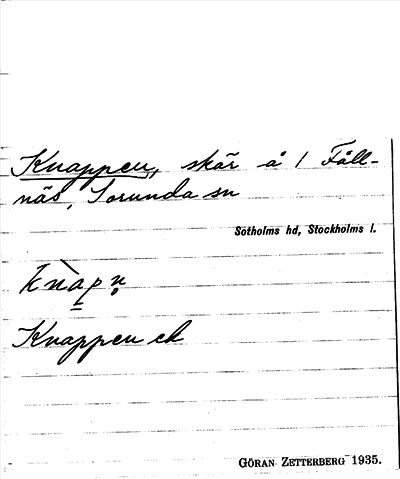 Knappen, skär å 1 Fåll-
näs, Sorunda sn
Sotholms hd, Stockholms l.
knàpn̥
Knappen ek
GÖRAN ZETTERBERG 1935.